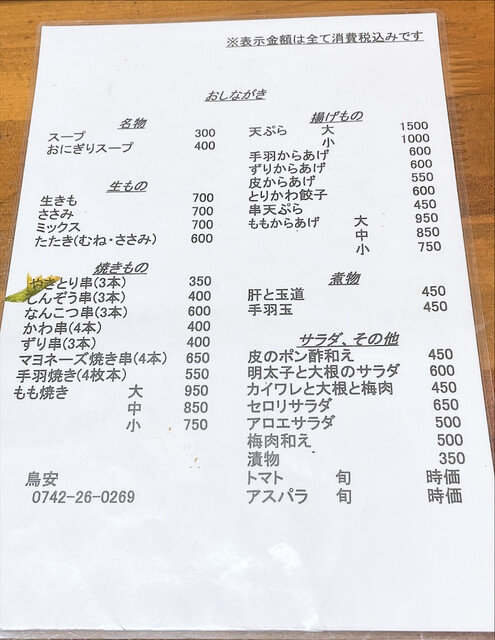 ※表示金額は全て消費税込みです
おしながき
名物
スープ 300
おにぎりスープ 400
生もの
生きも 700
ささみ 700
ミックス 700
たたき(むね・ささみ) 600
焼きもの
やきとり串(3本) 350
しんぞう串(3本) 400
なんこつ串(3本) 600
かわ串(4本) 400
ずり串(3本) 400
マヨネーズ焼き串(4本) 650
手羽焼き(4枚本) 550
もも焼き 大 950
中 850
小 750
鳥安
0742-26-0269
揚げもの
天ぷら 大 1500
小 1000
手羽からあげ 600
ずりからあげ 600
皮からあげ 550
とりかわ餃子 600
串天ぷら 450
ももからあげ 大 950
中 850
小 750
煮物
肝と玉道 450
手羽玉 450
サラダ、その他
皮のポン酢和え 450
明太子と大根のサラダ 600
カイワレと大根と梅肉 450
セロリサラダ 650
アロエサラダ 500
梅肉和え 500
漬物 350
トマト 旬 時価
アスパラ 旬 時価